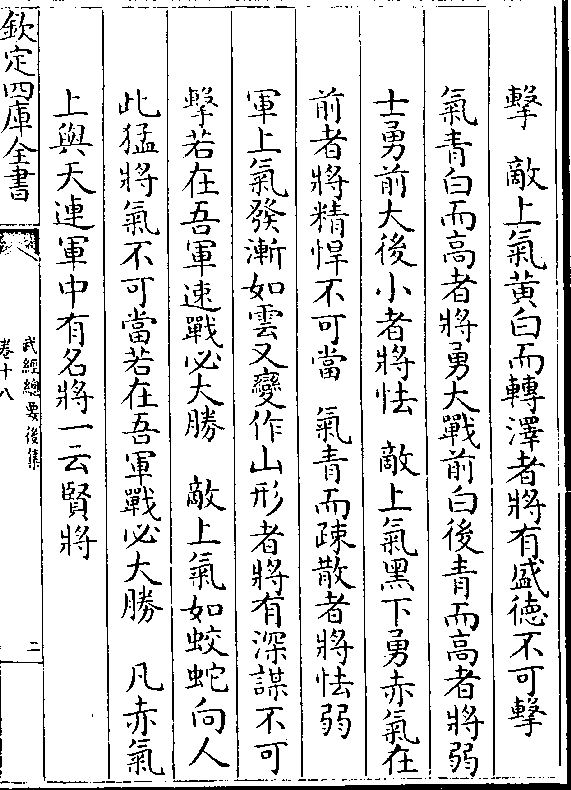 擊　敵上氣黃白而轉澤者將有盛德不可擊
氣青白而高者將勇大戰前白後青而高者將弱
士勇前大後小者將怯　敵上氣黑下勇赤氣在
前者將精悍不可當　氣青而疎散者將怯弱
軍上氣發漸如雲又變作山形者將有深謀不可
擊若在吾軍速戰必大勝　敵上氣如蛟蛇向人
此猛將氣不可當若在吾軍戰必大勝　凡赤氣
上與天連軍中有名將一云賢將
欽定四庫全書
武經總要後集
卷十八
二